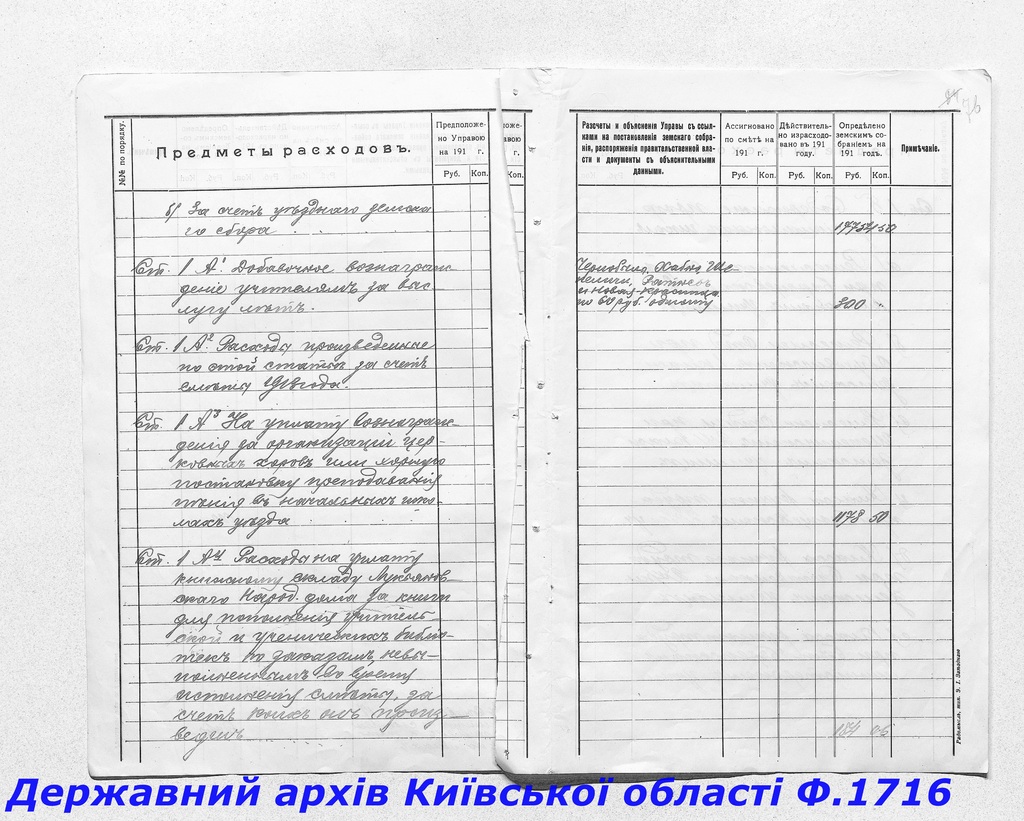 76
№№ по порядку.
Предметы расходовъ.
Предположе-
но Управою
на 191 г.
Руб. Коп.
б) За счетъ уѣзднаго земска
го сбора
Ст. 1 А¹. Добавочное вознаграж
деніе учителямъ за выс
лугу лѣтъ.
Ст. 1 А². Расходы произведенные
по этой статьѣ за счетъ
смѣты 1913 года.
Ст. 1 А³ На уплату вознаграж-
денія за организацію цер-
ковныхъ хоровъ или хорошую
постановку преподаванія
пѣнія въ начальныхъ шко-
лахъ уѣзда
Ст. 1 А⁴ Расходы на уплату
книжному складу Лукьянов-
скаго Народ. дома за книги
для пополненія учитель-
ской и ученическихъ библіо-
текъ по заказамъ, невы-
полненнымъ во время
исполненія смѣты, за
счетъ коихъ онъ произ-
веденъ
оже-
вою
г.
Коп.
Разсчеты и объясненія Управы съ ссыл-
ками на постановленія земскаго собра-
нія, распоряженія правительственной вла-
сти и документы съ объяснительными
данными.
Ассигновано
по смѣтѣ на
191 г.
Руб. Коп.
Дѣйствитель-
но израсходо-
вано въ 191
году.
Руб. Коп.
Опредѣлено
земскимъ со-
браніемъ на
191 годъ.
Руб. Коп.
Примѣчаніе.
17754 50
Чернобыль, Хабно, Ше-
пеличи,
и Новая-Красница
по 60 руб. одному
300
1178 50
184 05
Радомысль, тип.
Державний архів Київської області Ф.1716